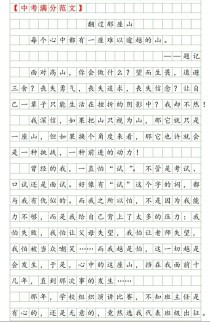 【中考满分范文】
翻过那座山
每个心中都有一座难以逾越的山。
——题记
面对高山，你会做什么？望而生畏，退避
三舍？丧失勇气，丧失追求，丧失信念？让自
己一辈子只能生活在挫折的阴影中？我却不然！
我深信，如果把山只视为山，那它就只是
一座山，但如果换个角度来看，那它也许就会
是一种挑战，一种前进的动力！
曾经的我，一直怕“试”。不管是考试、
口试还是面试，好像有“试”这个字的词，都
与我有仇似的。而我之所以怕，不是因为我能
力不够，而是我给自己背上了太多的压力：我
怕失败，我怕让父母失望，我怕让老师失望，
我怕被当众嘲笑……而我越是怕，这一切越是
会发生，于是，心中的这座山，挡在我面前十
几年，直到那次事的发生……
那年，学校组织演讲比赛，不知班主任是
有心的，还是无意的，竟然选我代表班级出战，